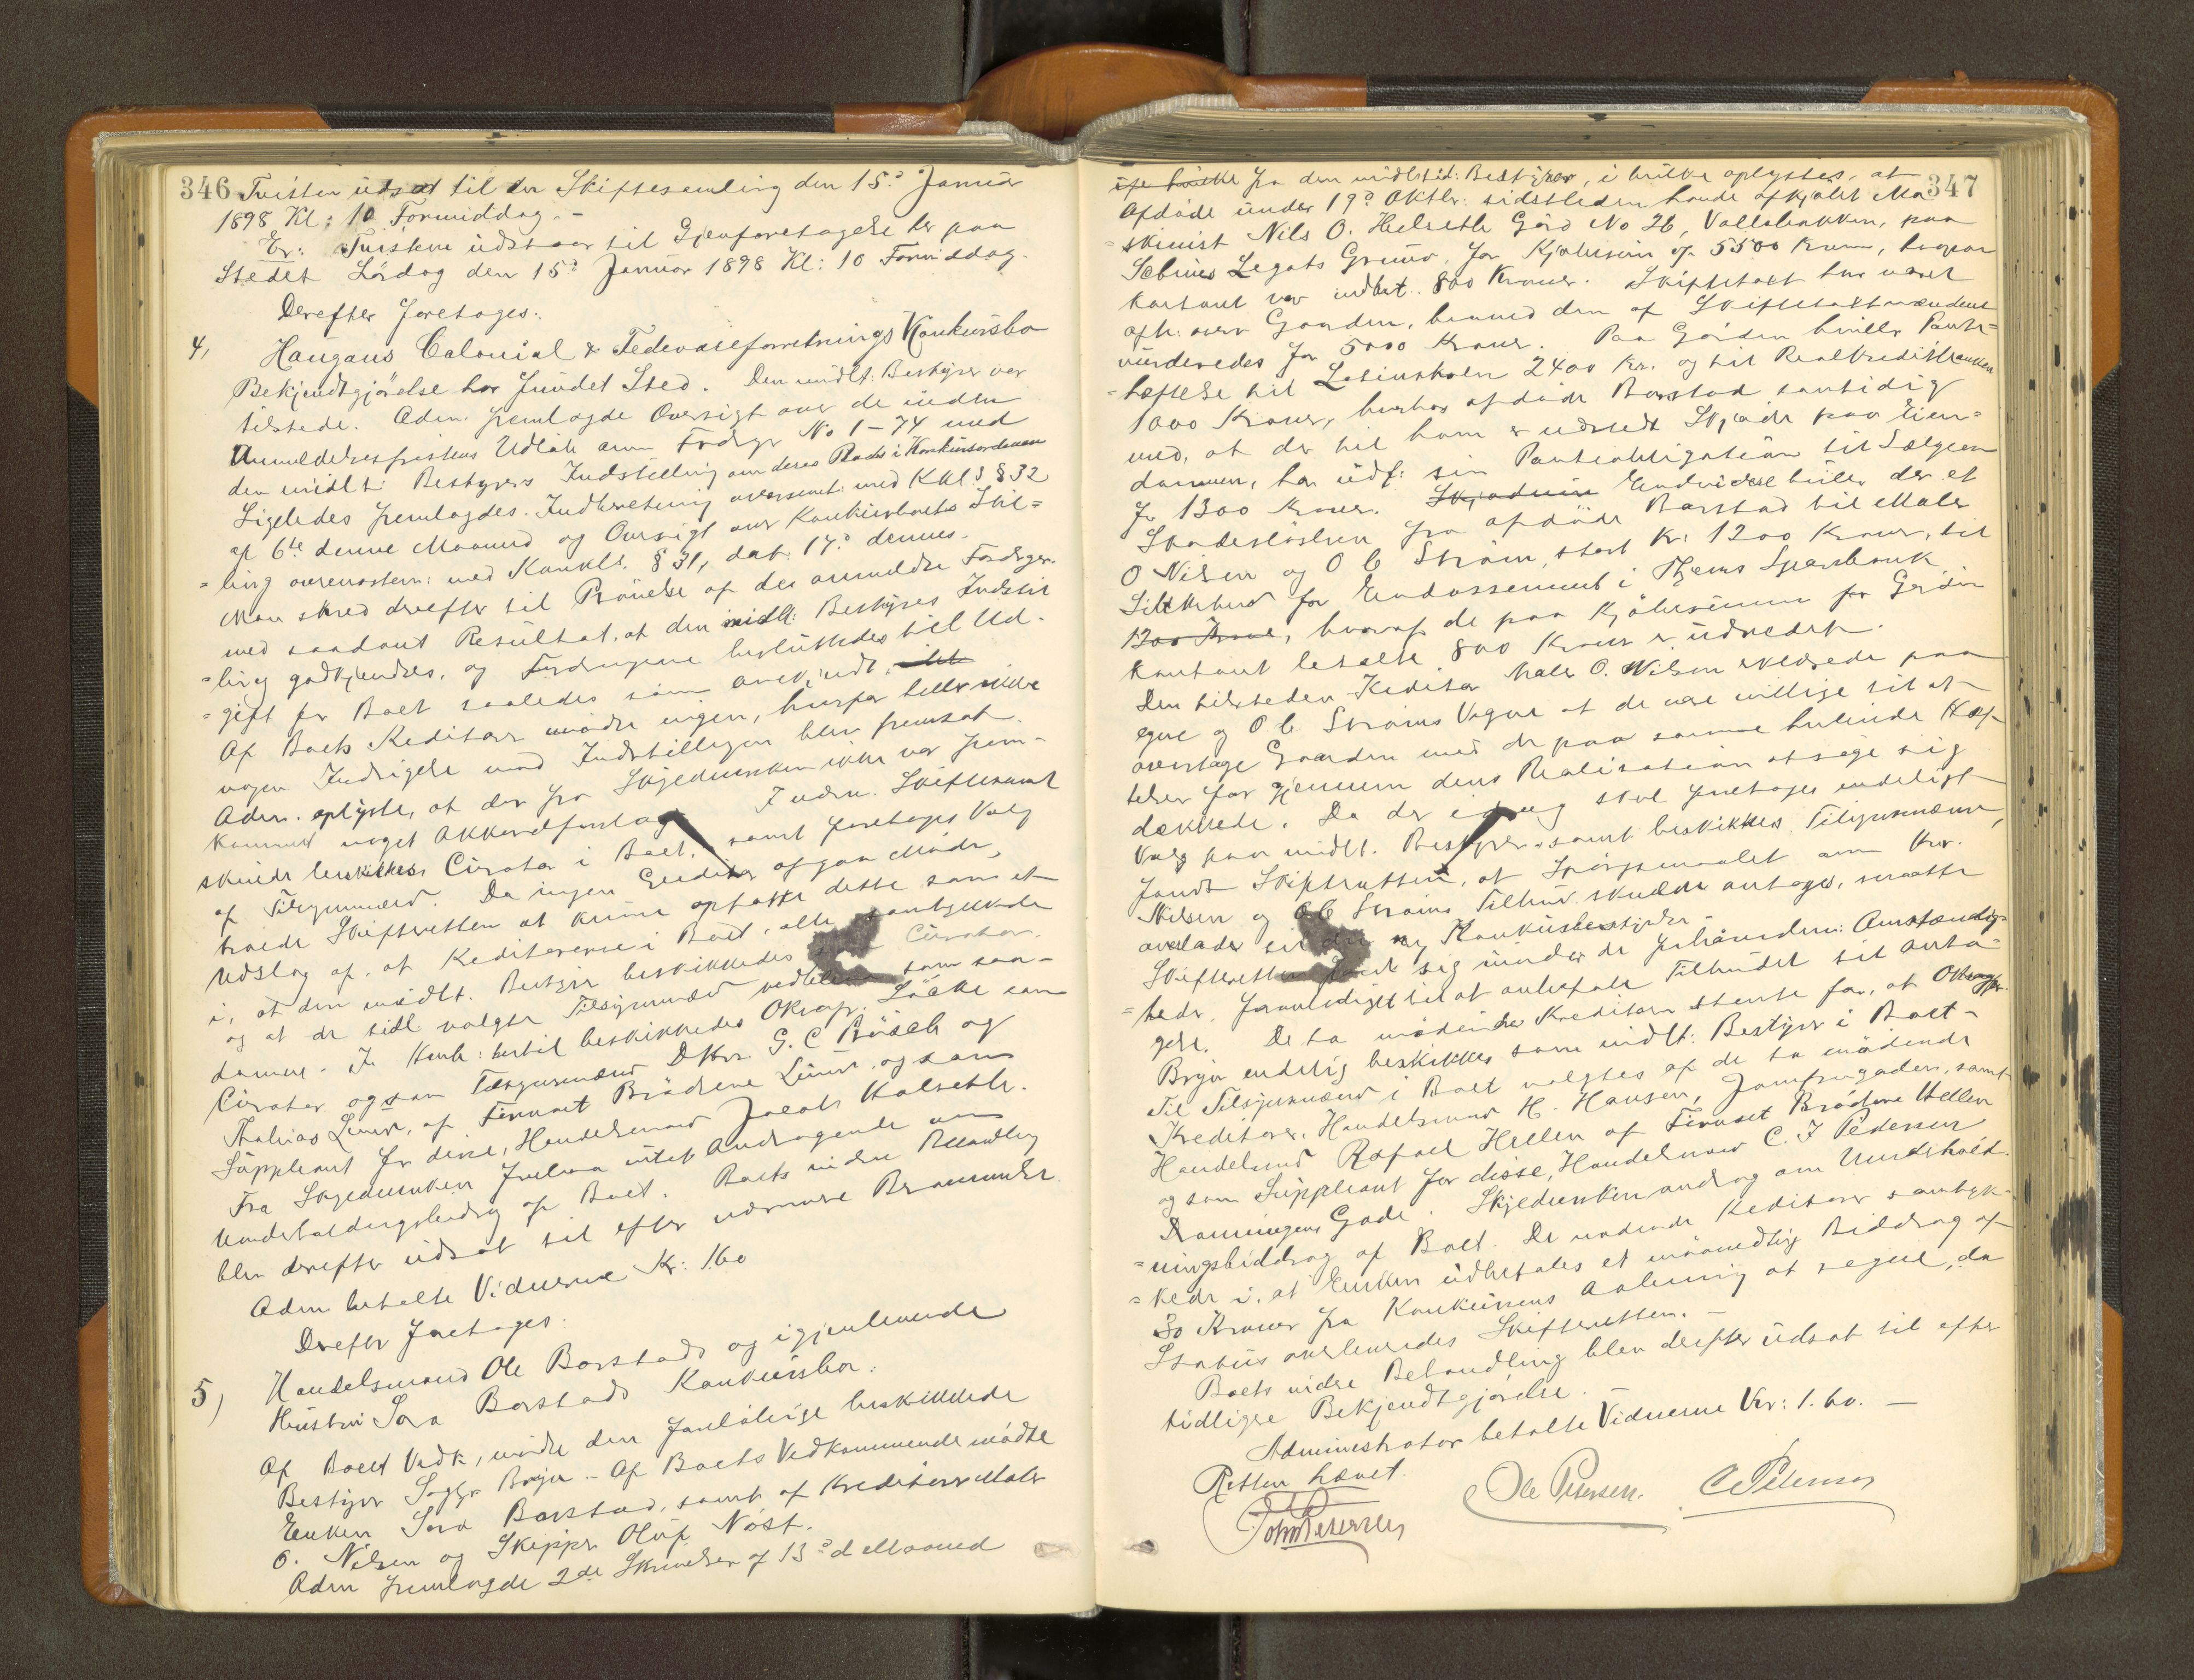 346 Tvisten udsat til en Skiftesamling den 15d Januar
1898 Kl: 10 Formiddag.-
Er: Tvistene udstaar til Gjenforetagelse her paa
Stedet Lördag den 15d Januar 1898 Kl: 10 Formiddag.
Derefter foretoges:
4, Haugans Colonial & Fedevareforretnings Konkursbo
Bekjendtgjörelse har fundet Sted. Den midlt: Bestyrer var
tilstede. Adm. fremlagde Oversigt over de inden
Anmeldelsesfristens Udlöb anm Fordrgr No 1-74 med
den midlt: Bestyrers Indstilling om deres Plads i Konkursordenen
Ligeledes fremlagdes Indberetning overensst: med Kkl § 32
af 6te denne Maaned og Oversigt over Konkursboets Stil=
=ling overensstem: med Konkl. § 31, dat. 17d dennes.
Man skred derefter til Prövelse af de anmeldte Fordrger.
med saadant Resultat, at den midlt: Bestyrers Indstil
=ling godkjendtes, og Fordringerne besluttedes til Ud-
=gift for Boet saaledes som anerkjendt.
Af Boets Kreditorer mödte ingen, hvorfor heller ikke
nogen Indsigelse mod Indstillingen blev fremsat.
Adm. oplyste, at der fra Skyldneren ikke var frem-
kommet noget Akkordforslag. I nærv. Skiftesaml
skulde beskikkes Curator i Boet, samt foretages Valg
af Tilsynsmænd. Da ingen Creditor afgav Möde,
troede Skifteretten at kunne opfatte dette som et
Udslag af, at Kreditorerne i Boet, alle samtykkede
i, at den midlt. Bestyrer beskikkedes Curator.
og at de tidl valgte Tilsynsmænd vedblev som saa-
danne. I Henh: hertil beskikkedes Oksagf. Löcke som
Curator og som Tilsynsmænd DHr. G. C Brösch og
Thobias Lund, af Firmaet Brödrene Lund, og som
Suppleant for disse, Handelsmand Jacob Halseth.
Fra Skyldneren forelaa intet Andragende om
Underholdningsbidrag af Boet. Boets videre Behandling
blev derefter udsat til efter nærmere Berammelse.
Adm betalte Vidnerne Kr: 1.60
Derefter foretoges:
5) Handelsmand Ole Borstads og igjenlevende
Hustru Sara Borstads Konkursbo.
Af Boets Vedk, mödte den foreløbige beskikkede
Bestyrer Sagfr Bryn - Af Boets Vedkommende mödte
Enken Sara Borstad, samt af Kreditorer Maler
O. Nilsen og Skipper Oluf Nöst.
Adm fremlagde 2de Skrivelser af 13d d Maaned
347
fra den midlstid: Bestyrer, i hvilke oplystes, at
Afdöde under 19d Oktbr. sidstleden havde afkjöbt Ma
=skinist Nils O. Helseth Gård No 26, Vollabakken, paa
Schives Legats Grund, for Kjøbesum af 5500 Kroner, hvorpaa
kontant var indbet. 800 Kroner. Skiftetaxt har været
afh: over Gaarden, hvorved den af Skiftetaxtmændene
vurderedes for 5000 Kroner. Paa Gården hviler Pante=
=heftelse til Latinskolen 2400 Kr. og til Realkreditbanken
1000 Kroner, hvorhos afdöde Borstad samtidig
med, at der til ham er udstedt Skjøde paa Eien=
dommen, har udf: sin Panteobligation til Sælgeren
for 1300 Kroner. Endvidere hviler der et
Skadeslösbrev fra afdöde Borstad til Maler
O Nilsen og O C Ström, stort kr: 1200 Kroner, til
Sikkerhed for Endossement i Thjems Sparebank
1200 Krone, hvoraf de paa Kjöbesummen for Gården
kontant betalte 800 Kroner er udredet.
Den tilstedev Kreditor Maler O. Nilsen erklærede paa
egne og O C Ströms Vegne at de vare villige til at
overtage Gaarden med de paa samme hvilende Hæf-
telser for gjennem dens Realisation at söge sig
dækkede. Da der idag skal foretages endeligt
Valg paa midlt. Bestyrer, samt beskikkes Tilsynsmænd,
fandt Skifteretten, at Spörgsmaalet om Hr.
Nilsen og O C Ströms Tilbud skulde antages, maatte
overlades til den ny Konkursbestyrer.
Skifteretten fandt sig under de forhåndenv: Omstændig=
=heder foranlediget til at anbefale Tilbudet til Anta=
gelse. De to mödende Kreditorer stemte for, at Oksagfr.
Bryn endelig beskikkes som midlt: Bestyrer i Boet-
Til Tilsynsmænd i Boet valgtes af de to mödende
Kreditorer, Handelsmand H. Hansen, Jomfrugaden, samt
Handelsmd Rafael Hellen af Firmaet Brödrene Hellen
og som Suppleant for disse, Handelsmand C. J Pedersen
Dronningens Gade. Skyldnersken androg om Underhold-
=ningsbiddrag af Boet. De mödende Kreditorer samtyk-
=kede i, at Enken udbetales et maanedlig Biddrag af
30 Kroner fra Konkursens Aabning at regne, da
Status overleveredes Skifteretten.-
Boets videre Behandling blev derefter udsat til efter
tidligere Bekjendtgjörelse.-
Administrator betalte Vidnerne Kr: 1.60.-
Retten hævet.
Ole Petersen. C Petersen
John Petersen